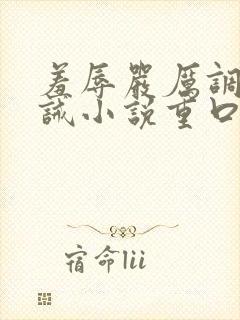 羞辱嚴厲調
誡小說重口
宿命lii